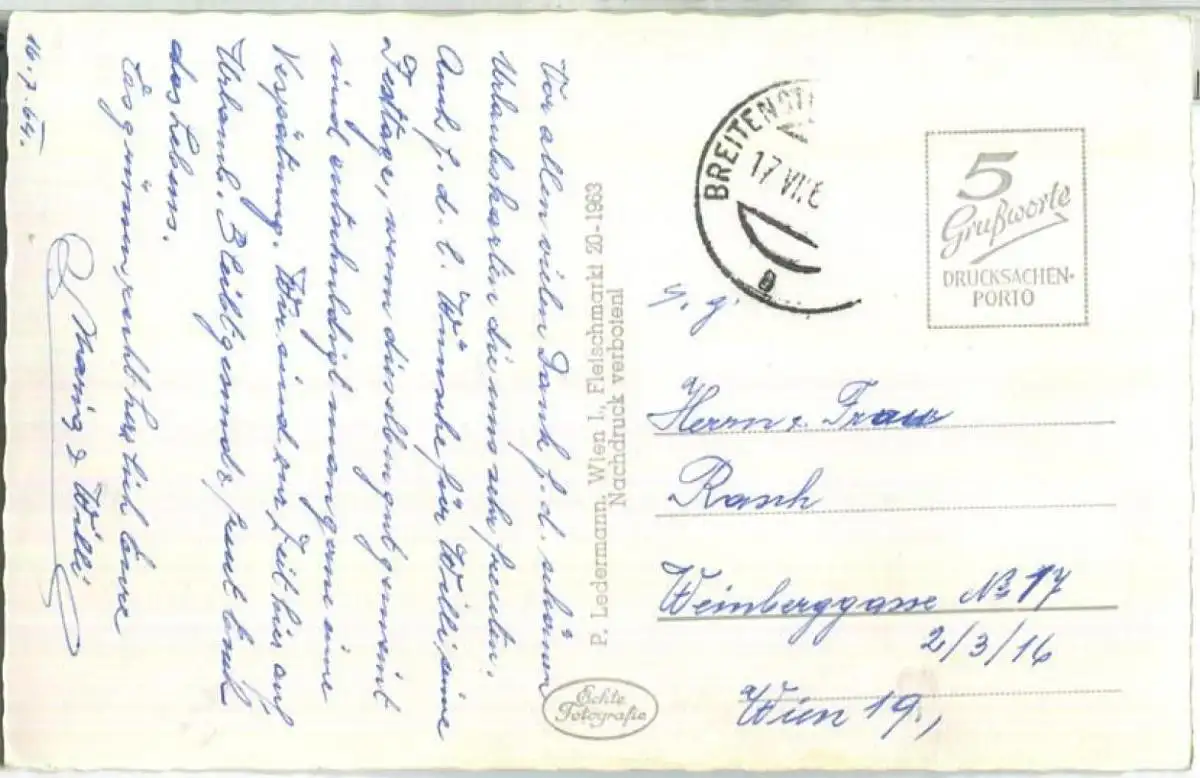 16.7.64.
Vor allem vielen Dank f. d. schönen
Urlaubskarten die uns sehr freuten.
Auch f. d. l. Wünsche für Willi seine
Festtage, wenn dieselben gut gemeint
sind entschuldigt man gerne eine
Verspätung. Wir sind zur Zeit hier auf
Urlaub. Bleibt gesund & freut Euch
des Lebens.
Es grüssen recht herzlich Eure
Maria & Willi
P. Ledermann, Wien I., Fleischmarkt 20-1963
Nachdruck verboten!
Echte
Fotografie
BREITENST
17 VII 6
a
5
Grußworte
DRUCKSACHEN-
PORTO
Herrn u. Frau
Rasch
Weinberggasse No 17
2/3/16
Wien 19,